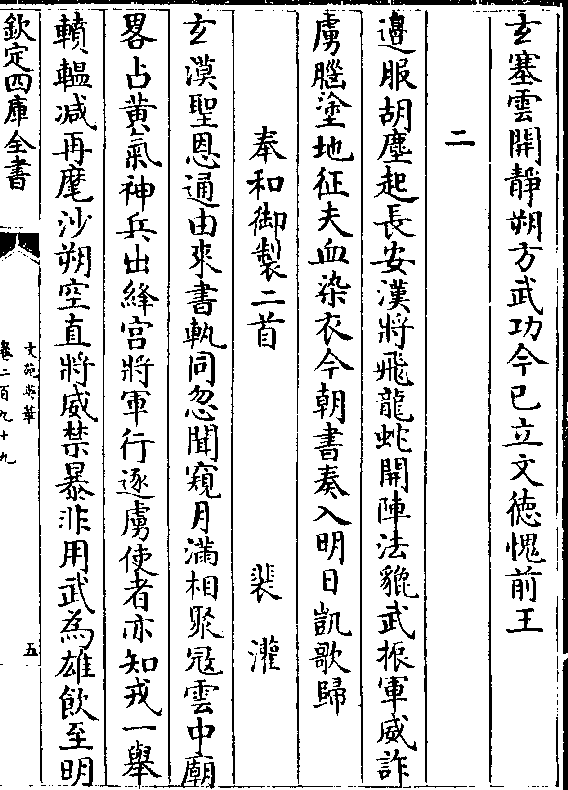 玄塞雲開靜朔方武功今已立文徳愧前王
二
邉服胡塵起長安漢將飛龍虵開陣法貔武振軍威詐
虜腦塗地征夫血染衣今朝書奏入明日凱歌歸
奉和御製二首　裴漼
玄漠聖恩通由來書軌同忽聞窺月滿相聚冦雲中廟
畧占黄氣神兵出絳宫將軍行逐虜使者亦知戎一舉
轒轀减再麾沙朔空直將威禁暴非用武為雄飲至明
欽定四庫全書
文苑英華
卷二百九十九
五